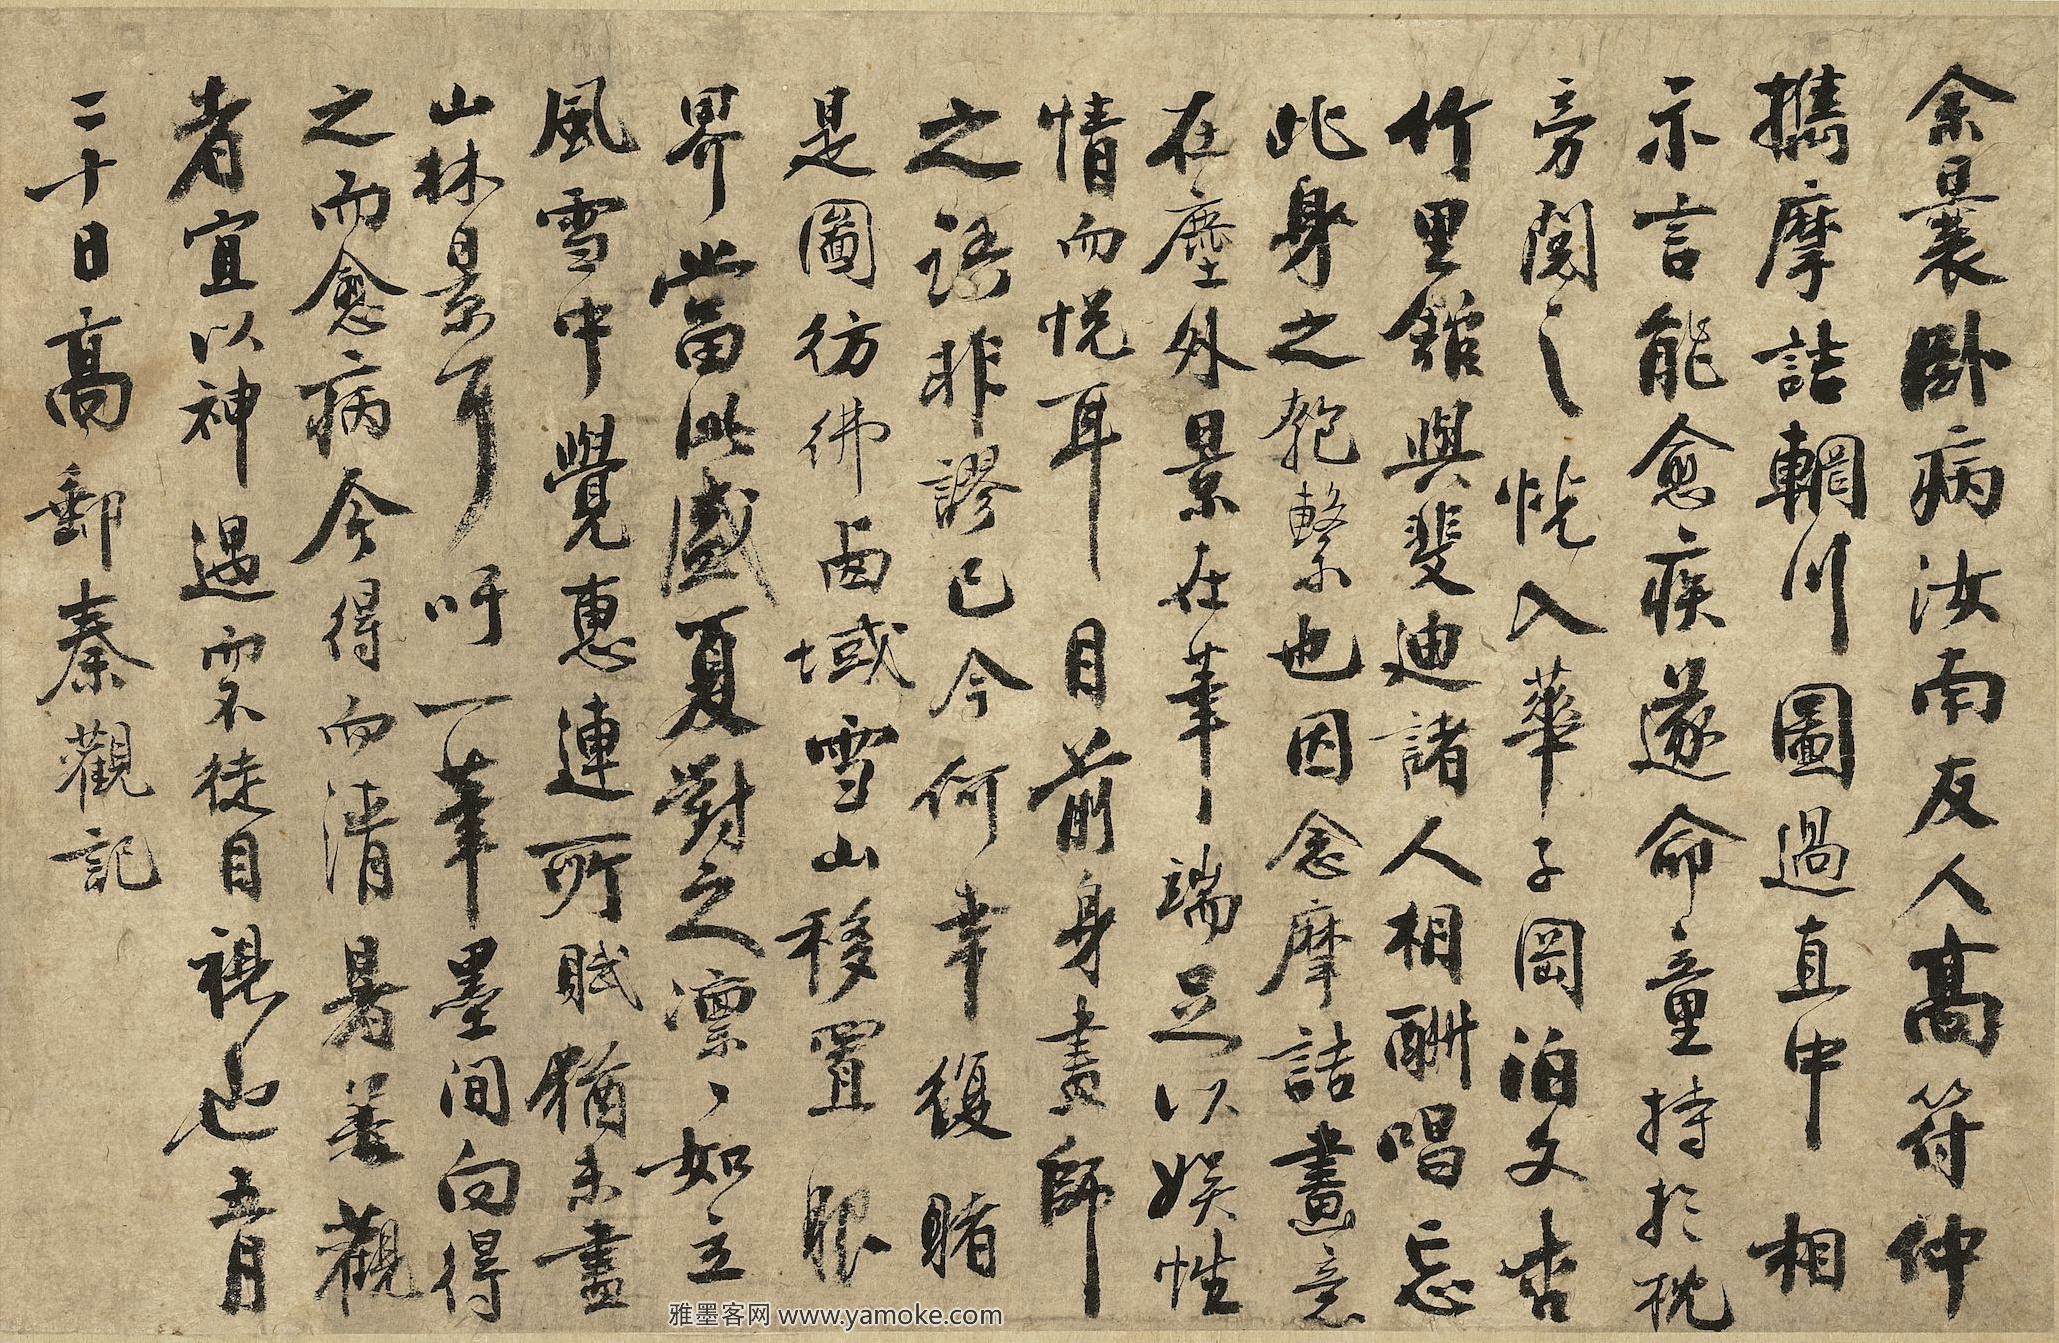 余曩臥病汝南友人高符仲
攜摩詰輞川圖過直中相
示言能愈疾遂命童持於枕
旁閱之恍入華子岡泊文杏
竹里館與斐迪諸人相酬唱忘
此身之匏繫也因念摩詰畫意
在塵外景在筆端足以娛性
情而悅耳目前身畫師
之語非謬已今何幸復睹
是圖彷彿西域雪山移置眼
界當此盛夏對之凛〻如立
風雪中覺惠連所賦猶未盡
山林景耳吁一筆墨間向得
之而愈病今得而清暑善觀
者宜以神遇而不徒目視也五月
二十日高郵秦觀記
雅墨客网 www.yamoke.com